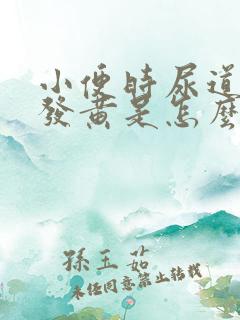 小便時尿道
發黃是怎麼
孫玉茹
未經同意禁止轉載